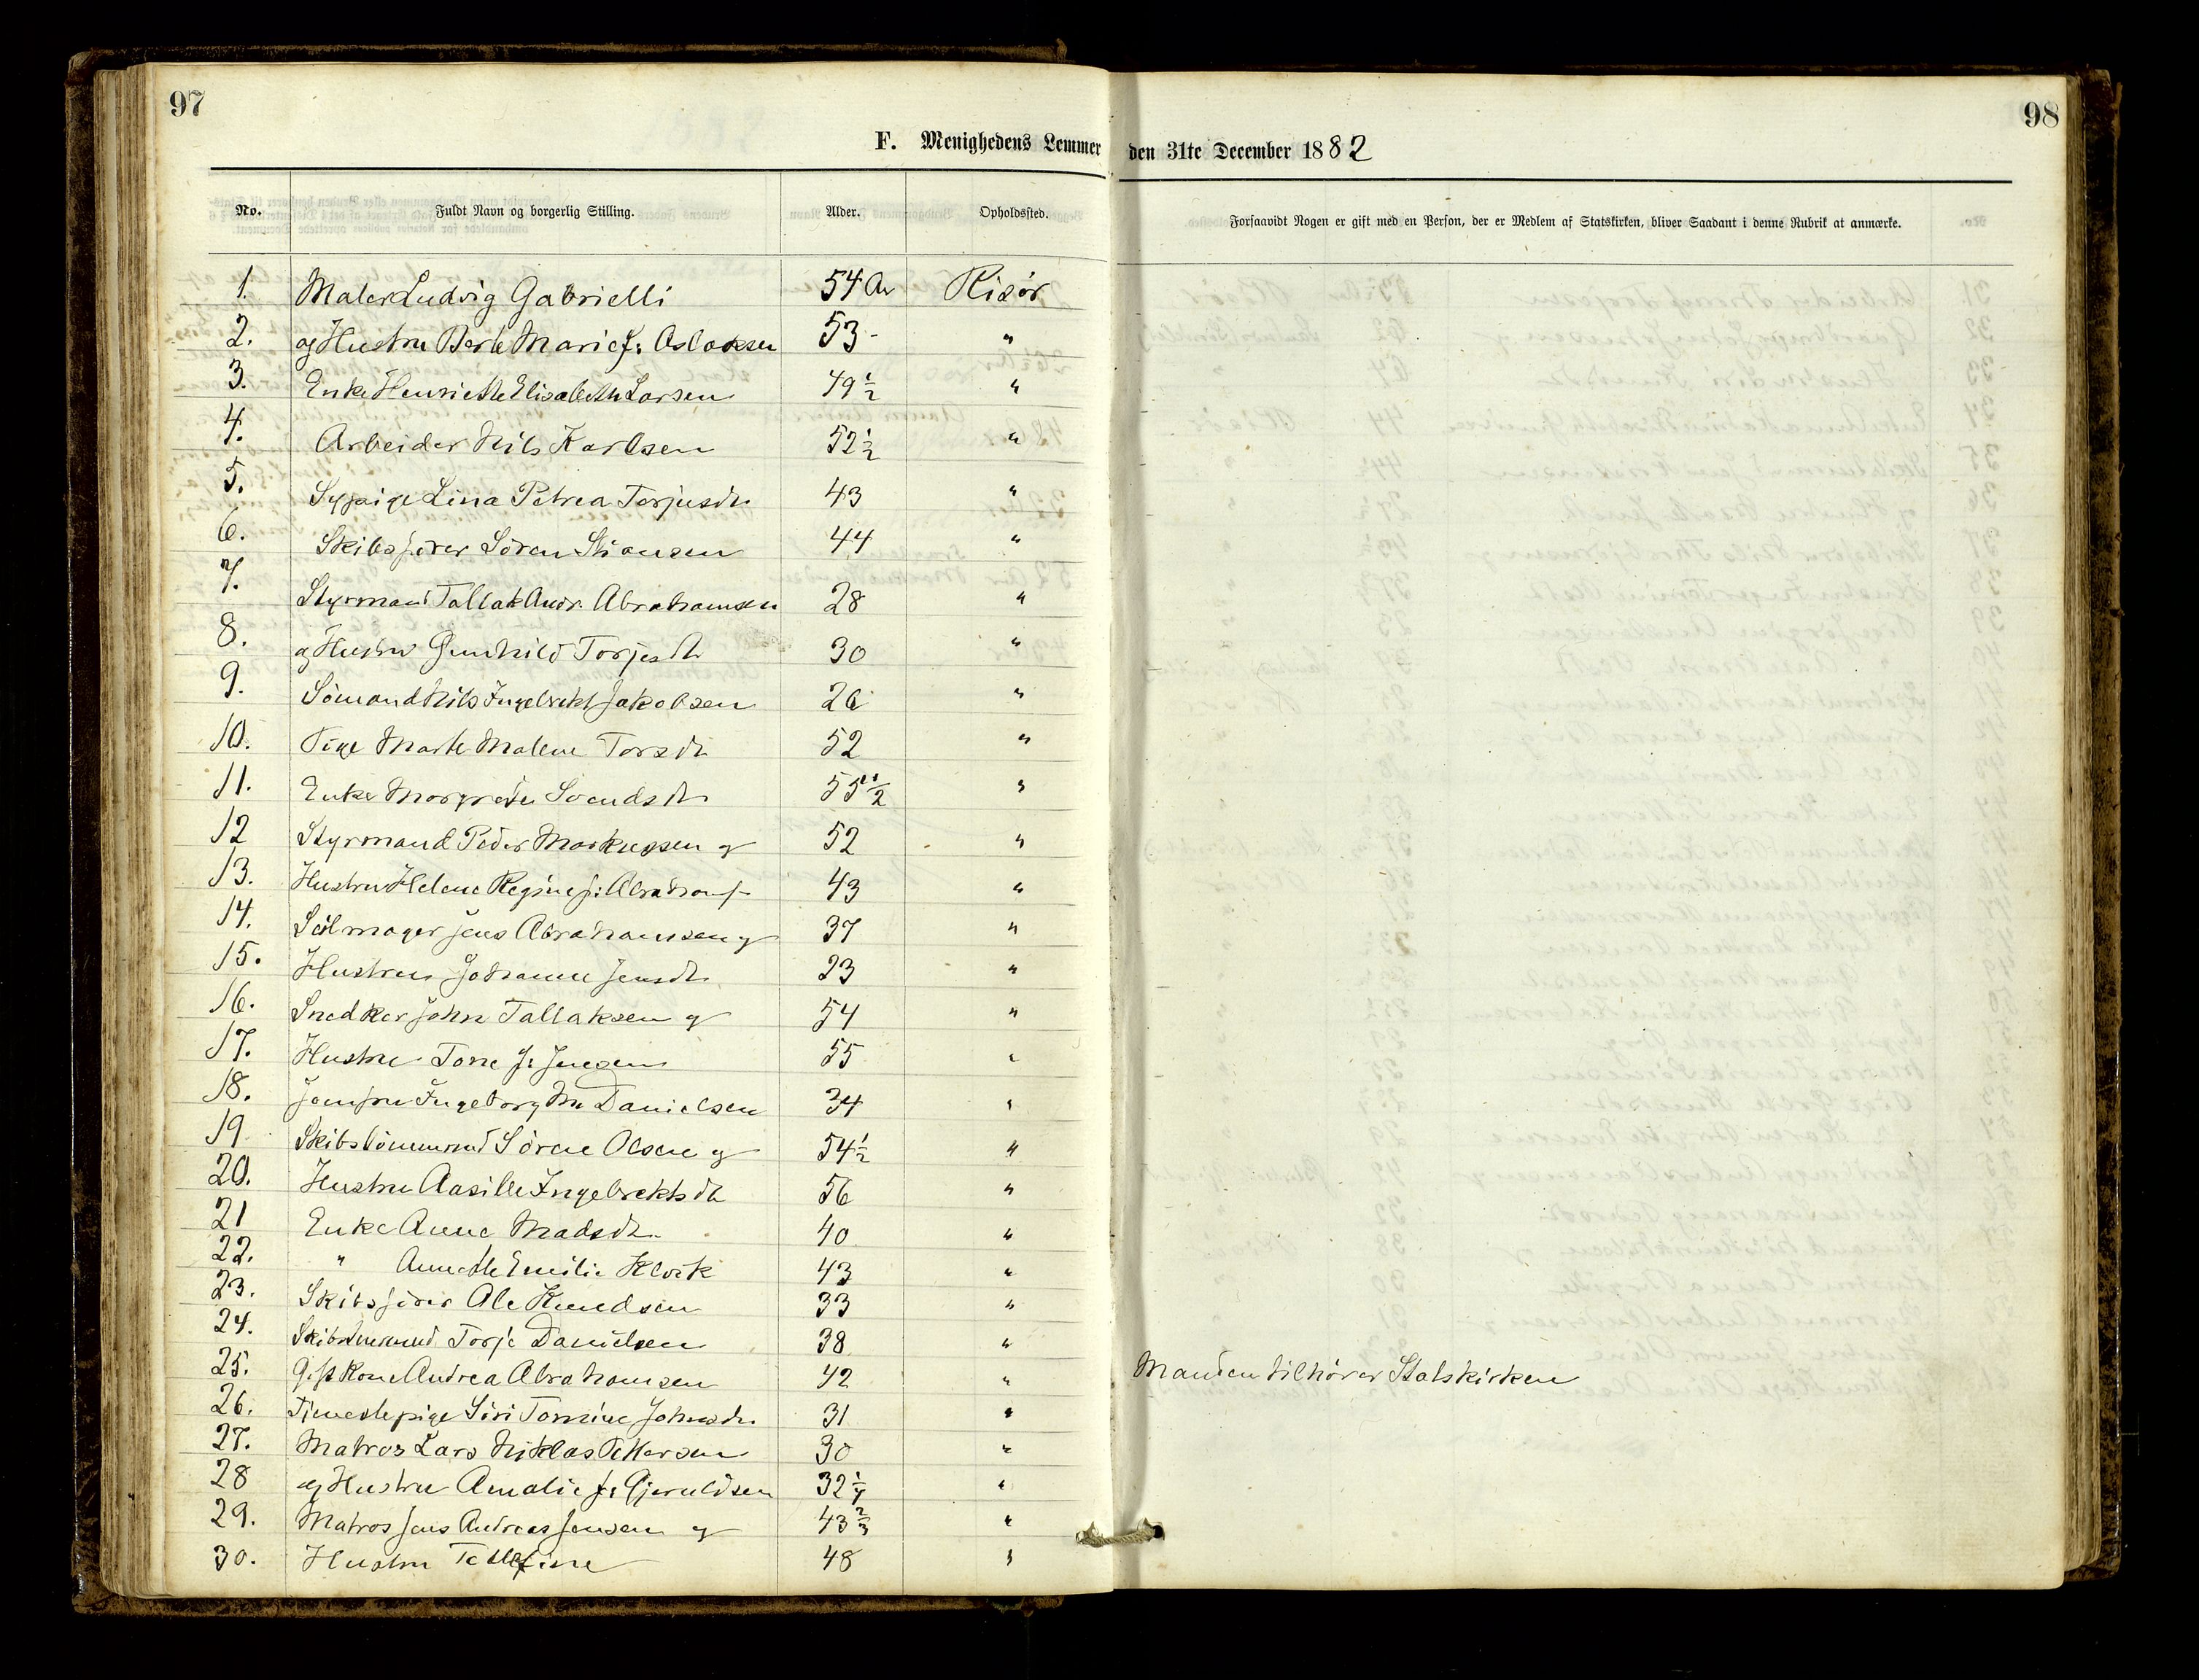 97
98
F. Menighedens Lemmer den 31te December 1882
No. Fuldt Navn og borgerlig Stilling. Alder. Opholdssted. Forsaavidt Nogen er gift med en Person, der er Medlem af Statskirken, bliver Saadant i denne Rubrik at anmærke.
1. Maler Ludvig Gabrielli 54 Ar Risör
2. og Hustru Berte Marie f: Aslaksen 53 - "
3. Enke Henriette Elisabeth Larsen 49 1/2 "
4. Arbeider Nils Karlsen 52 1/2 "
5. Sypige Lina Petrea Torjusdt 43 "
6. Skibsförer Sören Stiansen 44 "
7. Styrmand Tallak Andr. Abrahamsen 28 "
8. og Hustru Gunhild Torjusdt 30 "
9. Sömand Nils Ingebrekt Jakobsen 26 "
10. Pige Marte Malene Torsdt 52 "
11. Enke Margrete Svendsdt 55 1/2 "
12 Styrmand Peder Markussen og 52 "
13. Hustru Helene Regine f: Abrahams 43 "
14. Seilmager Jens Abrahamsen og 37 "
15. Hustru Johanne Jensdt 23 "
16. Snedker John Tallaksen og 54 "
17. Hustru Tone f: Jensen 55 "
18. Jomfru Ingeborg M. Danielsen 34 "
19 Skibstömmermd Sören Olsen og 54 1/2 "
20. Hustru Aasille Ingebrektsdt 56 "
21 Enke Anne Madsdt. 40 "
22. " Annette Emilie Klvik 43 "
23. Skibsförer Ole Knudsen 33 "
24. Skibstmmermd. Torje Danielsen 38 "
25. Gift Kone Andrea Abrahamsen 42 " Manden tilhörer Statskirken
26. Tjenestepige Siri Tomine Johnsdt. 31 "
27. Matros Lars Niklas Pettersen 30 "
28 og Hustru Amalie f: Gjeruldsen 32 1/4 "
29. Matros Jens Andreas Jensen og 43 2/3 "
30. Hustru Tellefine 48 "